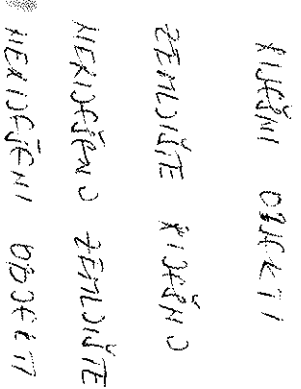 RIJEŠENI OBJEKTI
ZEMLJIŠTE RIJEŠENO
NERIJEŠENO ZEMLJIŠTE
NERIJEŠENI OBJEKTI